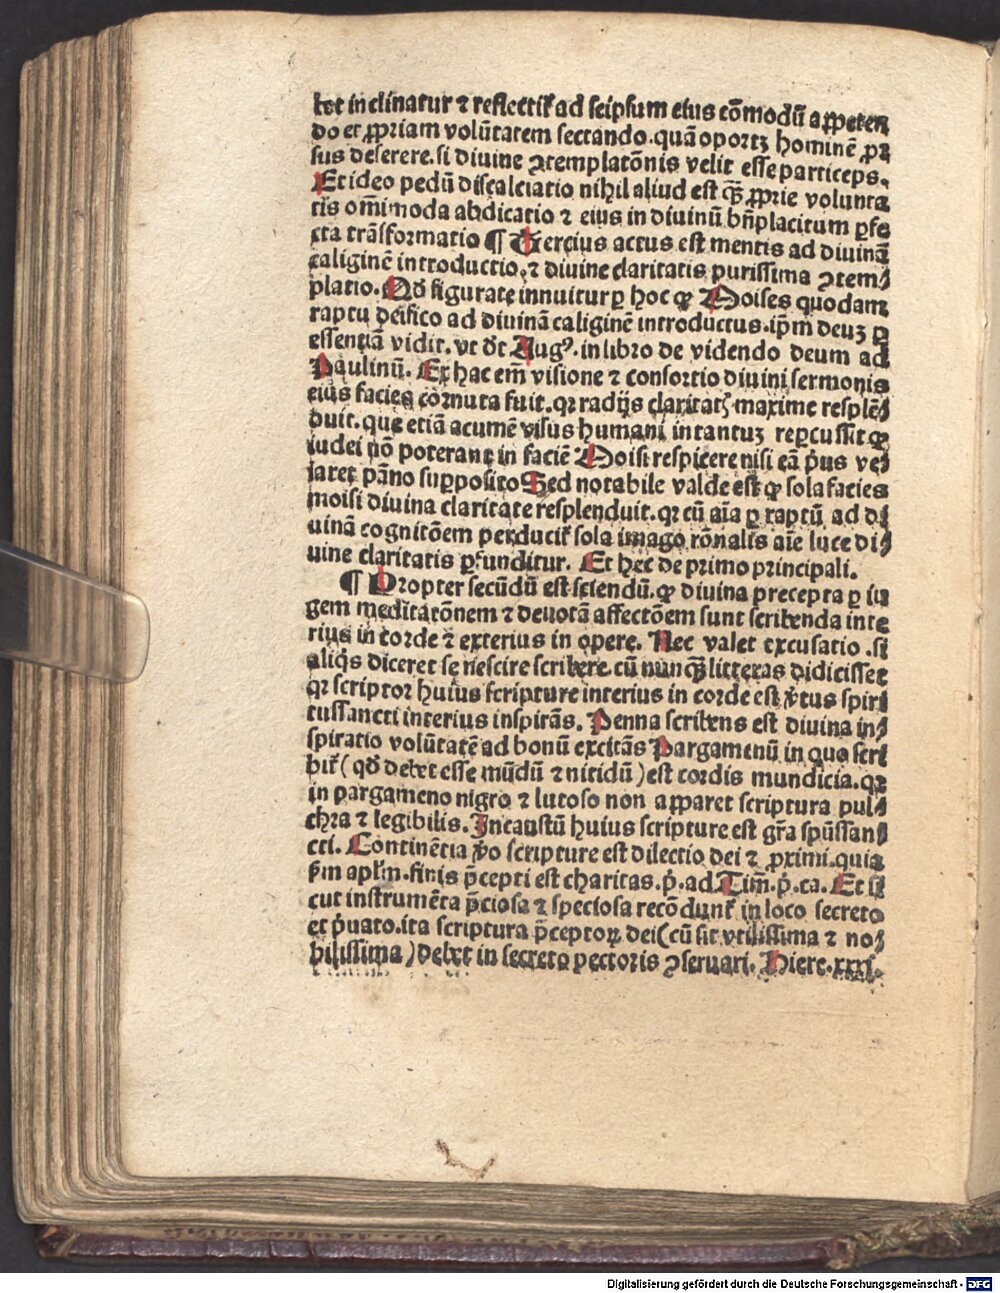 bet inclinatur ⁊ reflectit᷑ ad seipsum eius cōmodū appeten
do et ꝓpriam volūtatem sectando.quā oportꝫ hominē ꝓr
sus deserere.si diuine ꝯtemplatōnis velit esse particeps.
Et ideo pedū discalciatio nihil aliud est qȝ̄ ꝓprie volunta
tis om̄imoda abdicatio ⁊ eius in diuinū bn̄placitum ꝑfe
cta trāsformatio ¶ Tercius actus est mentis ad diuinā
caliginē introductio.⁊ diuine claritatis purissima ꝯtem⸗
platio. Qđ figurate innuitur ꝑ hoc ꝙ Moises quodam
raptu deifico ad diuinā caliginē introductus.ip̄m deuꝫ ꝑ
essentiā vidit. vt d̓t Augꝰ. in libro de videndo deum ad
Paulinū. Ex hac em̄ visione ⁊ consortio diuini sermonis
eius facies cornuta fuit.qr radijs claritatꝭ maxime resplē⸗
duit.que etiā acumē visus humani intantuꝫ reꝑcussit ꝙ
iudei nō poterant in faciē Moisi respicere nisi eā p̓us ve⸗
laret pāno suꝑposito Sed notabile valde est ꝙ sola facies
moisi diuina claritate resplenduit.qr cū aīa ꝑ raptū ad di
uinā cognitōem perducit᷑ sola imago rōnalis aīe luce di⸗
uine claritatis ꝑfunditur. Et hec de primo principali.
¶ Propter secūdū est sciendū.ꝙ diuina precepta ꝑ iu
gem meditatōnem ⁊ deuotā affectōem sunt scribenda inte
rius in corde ⁊ exterius in opere. Nec valet excusatio .si
aliq̓s diceret se nescire scribere cū nunqȝ̄ litteras didicisset
qr scriptor huius scripture interius in corde est v̓tus spiri
tussancti interius inspirās. Penna scribens est diuina in⸗
spiratio volūtatē ad bonū excitās Pargamenū in quo scri
bit᷑ ( qđ debet esse mūdū ⁊ nitidū ) est cordis mundicia.qr
in pargameno nigro ⁊ lutoso non apparet scriptura pul⸗
chra ⁊ legibilis. Incaustū huius scripture est gr̄a spūssan⸗
cti. Continētia v̓o scripture est dilectio dei ⁊ ꝓximi.quia
ẜm apl̓m.finis p̄cepti est charitas.p̓.ad Tim̄.p̓.ca. Et si
cut instrumēta p̄ciosa ⁊ speciosa recōdunt᷑ in loco secreto
et p̓uato.ita scriptura p̄ceptoꝝ dei ( cū sit vtilissima ⁊ no⸗
bilissima ) debet in secreto pectoris ꝯseruari. Hiere.xxxi.
Digitalisierung gefördert durch die Deutsche Forschungsgemeinschaft - DFG